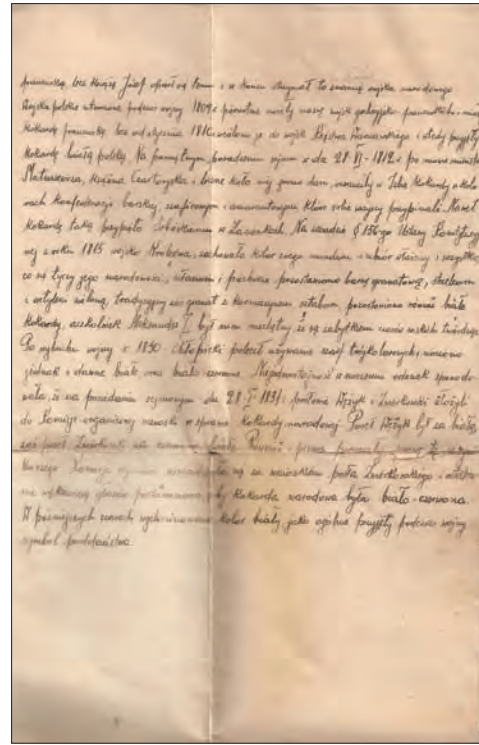 francuską, lecz książę Józef oparł się temu i w końcu utrzymał to znamię wojska narodowego
Wojska polskie utworzone podczas wojny 1809 r. pierwotnie nosiły nazwę wojsk galicyjsko-francuskich i miały
kokardę francuską, lecz od stycznia 1810 wcielono je do wojsk Księstwa Warszawskiego i wtedy przyjęły
kokardę białą polską. Na pamiętnym posiedzeniu sejmu w dn. 28.VI.1812 r. po mowie ministra
Matuszewicza, księżna Czartoryska i liczne koło niej grono dam, wniosły w Izbę kokardy o kolo-
rach konfederacji barskiej, szafirowym i amarantowym, które sobie wszyscy przypinali. Nawet
kokardę taką przypięto Sobieskiemu w Łazienkach. Na zasadzie § 156-go Ustawy Konstytucyj-
nej z roku 1815 wojsko Królestwa, zachowało kolor swego munduru i ubiór właściwy i wszystko,
co się tyczy jego narodowości; ułanom i piechocie pozostawiono barwę granatową, strzelcom
i artylerii zieloną, tradycyjny zaś granat z karmazynem sztabom, pozostawiono również białe
kokardy, aczkolwiek Aleksander I był niemi niechętny, że są zabytkiem
Po wybuchu wojny r. 1830 Chłopicki polecił używanie szarf trójkolorowych, noszono
jednak i dawne białe, oraz biało-czerwone. Niejednolitość w noszeniu odznak spowodo-
wała, że na posiedzeniu sejmowym dn. 28.I.1831 r. posłowie Wężyk i Zwierkowski złożyli
do Komisji organicznej wnioski w sprawie kokardy narodowej. Poseł Wężyk był za białą,
zaś poseł Zwierkowski za czerwono-białą. Również i pisma
Komisja się za wnioskiem posła Zwierkowskiego i
większością głosów postanowiono, aby kokarda narodowa była biało-czerwona.
W późniejszych czasach wyeliminowano kolor biały, jako ogólnie przyjęty podczas wojny
symbol poddaństwa.